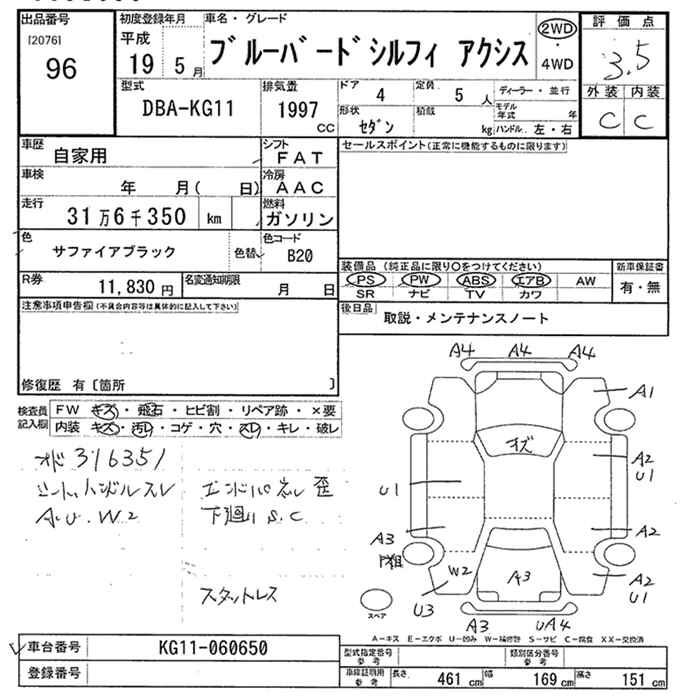 出品番号
[2076]
96
初度登録年月
平成
19 5月
車名・グレード
ブルーバードシルフィ アクシス
2WD
・
4WD
評価点
3.5
外装 内装
C C
型式
DBA-KG11
排気量
1997
CC
ドア
4
定員
5 人
ディーラー・並行
モデル年式 年
形状
セダン
積載
kg
ハンドル 左・右
車歴
自家用
シフト
FAT
車検
年 月( 日)
冷房
AAC
走行
31万6千350 km
燃料
ガソリン
色
サファイアブラック
色替
色コード
B20
R券
11,830円
名変通知期限
月 日
セールスポイント(正常に機能するものに限ります)
装備品 (純正品に限り○をつけてください)
PS PW ABS エアB AW
SR ナビ TV カワ
新車保証書
有・無
後日品
取説・メンテナンスノート
注意事項申告欄(不具合内容等は具体的に記入して下さい)
修復歴 有〔箇所 〕
検査員記入欄
FW キズ・飛石・ヒビ割・リペア跡・×要
内装 キズ・汚れ・コゲ・穴・スレ・キレ・破レ
オド 316351
シート、ハンドルスレ
A.U.W2
エンドパネル歪
下廻りS.C
スタットレス
A4 A4 A4
A1
キズ
A2
U1
U1
A3
A2
W2
A3
A2
U1
U3
A3
UA4
スペア
A-キズ E-エクボ U-凹み W-補修跡 S-サビ C-腐食 XX-交換済
車台番号
KG11-060650
登録番号
型式指定番号
参考
類別区分番号
参考
車検証明用
参考
長さ 461 cm
幅 169 cm
高さ 151 cm